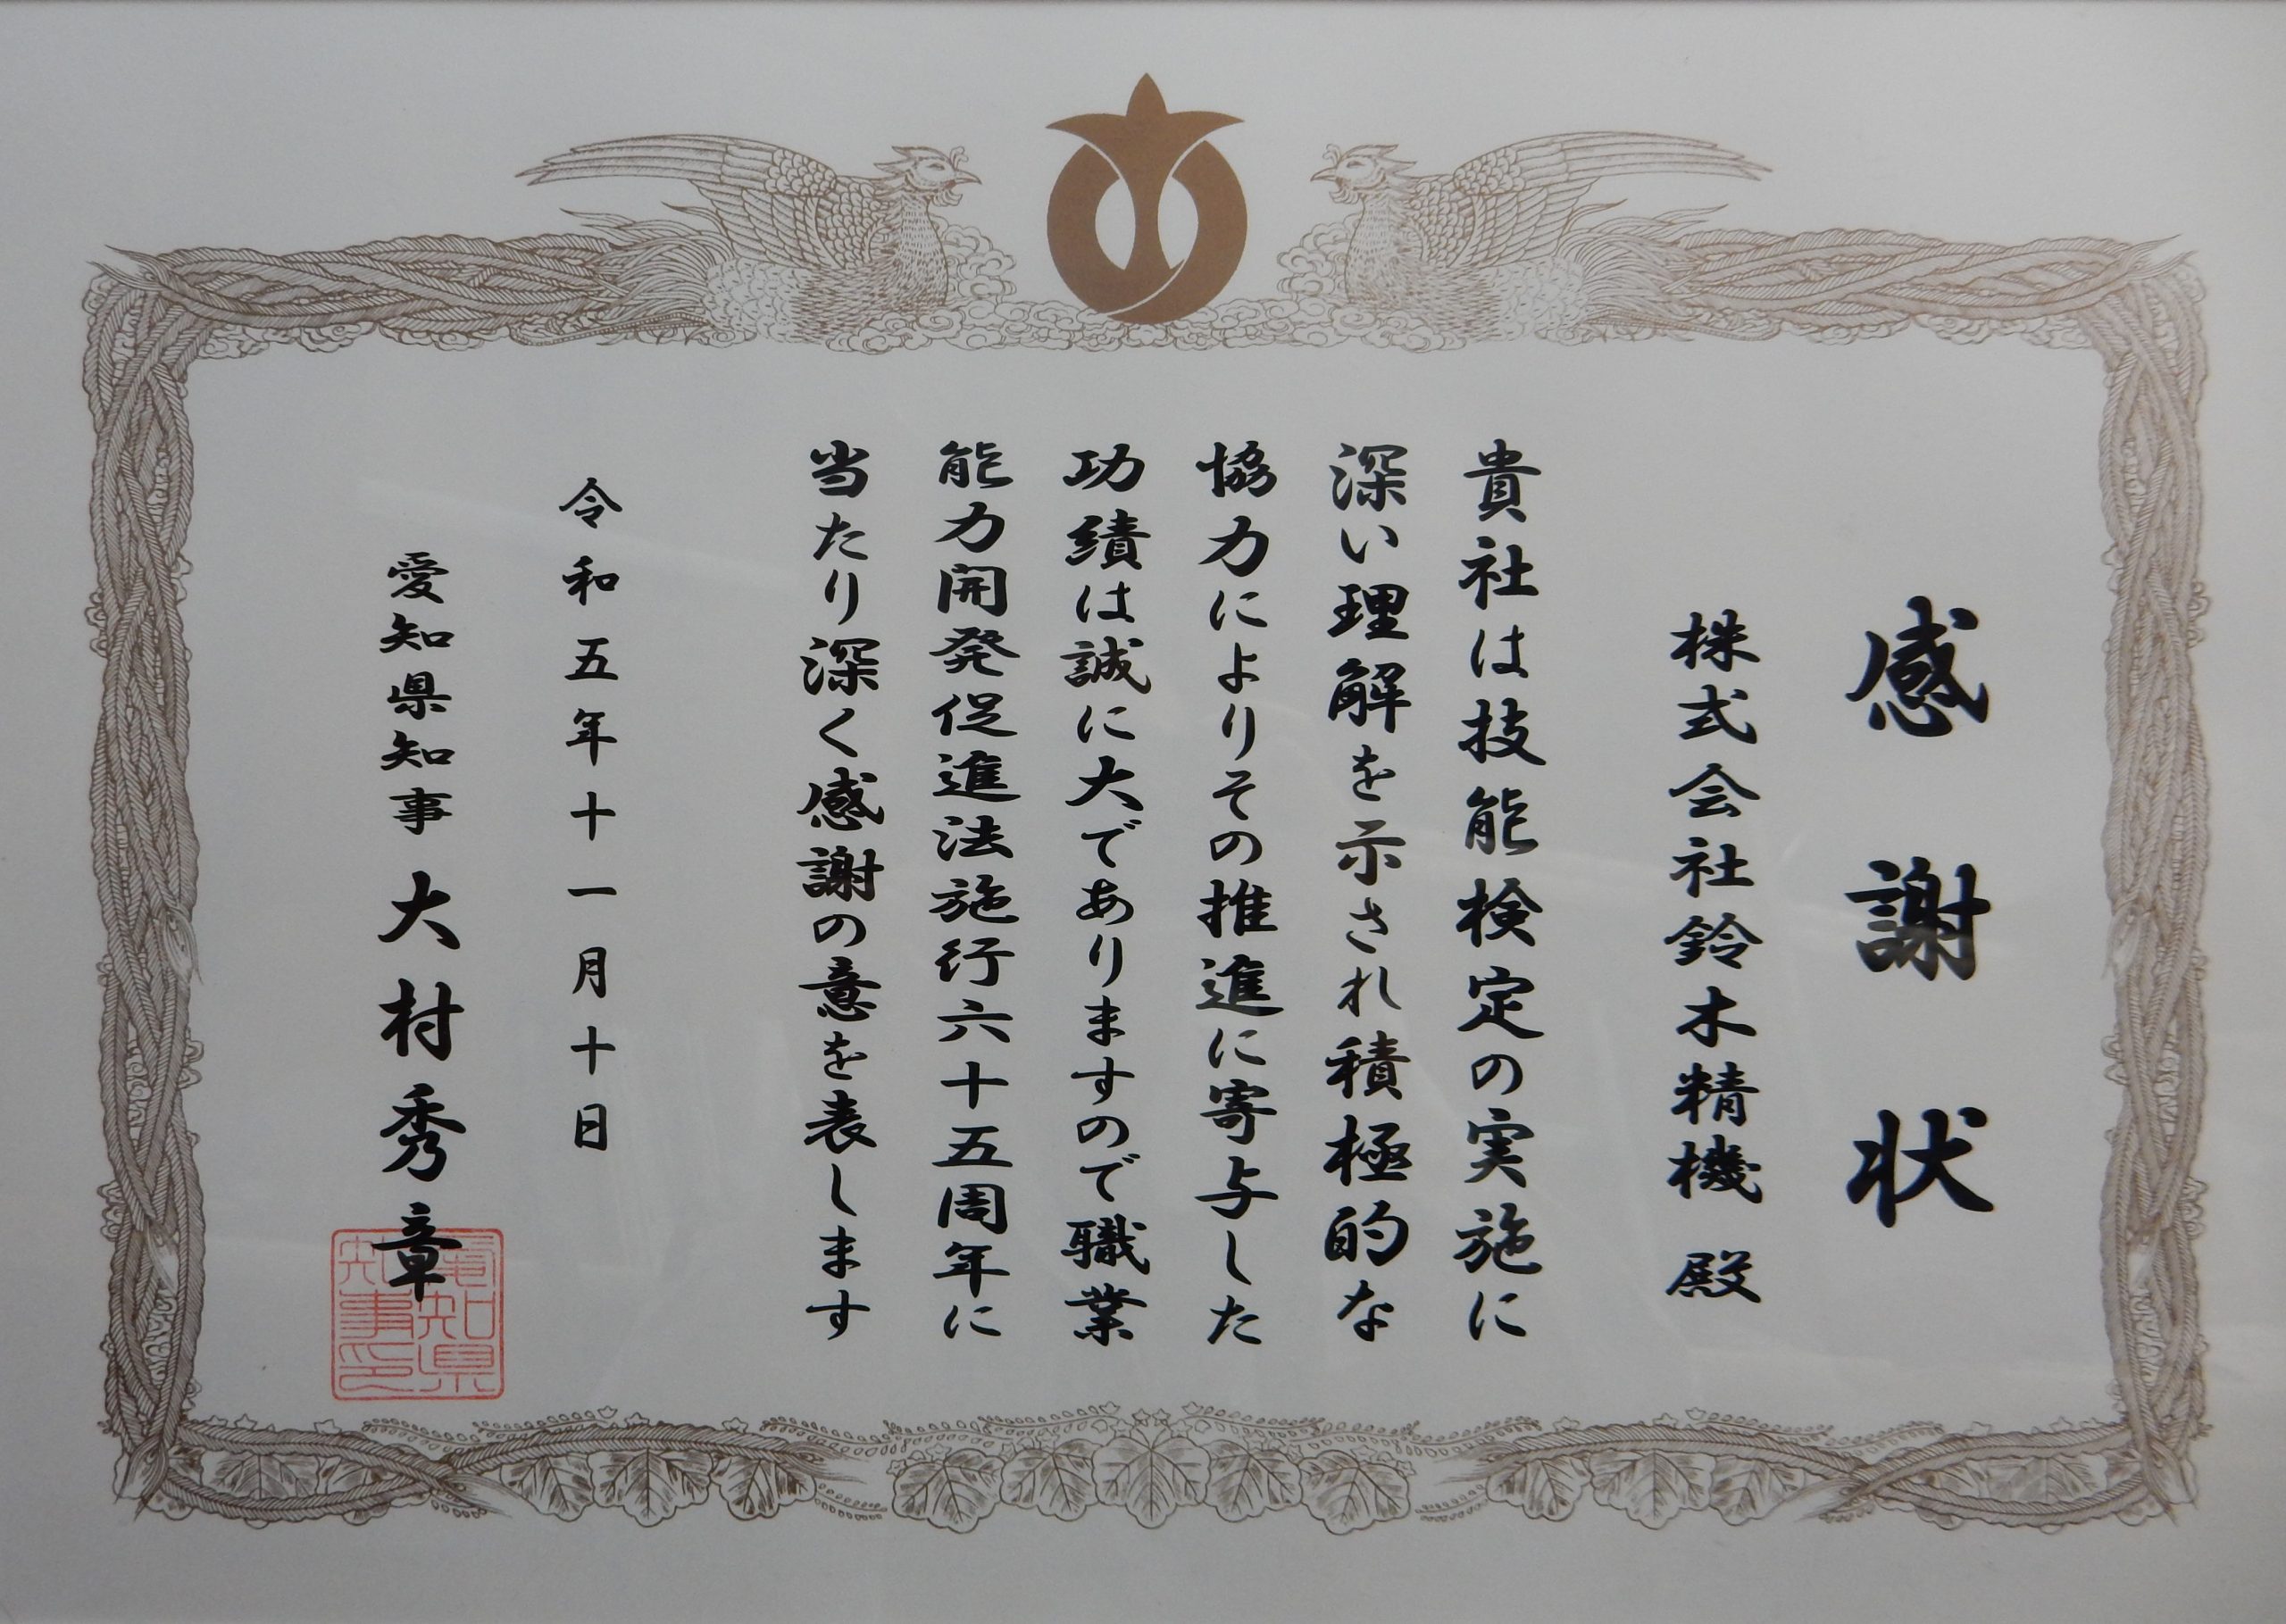 感謝状
株式会社鈴木精機 殿
貴社は技能検定の実施に
深い理解を示され積極的な
協力によりその推進に寄与した
功績は誠に大でありますので職業
能力開発促進法施行六十五周年に
当たり深く感謝の意を表します
令和五年十一月十日
愛知県知事 大村秀章
愛知県
知事印